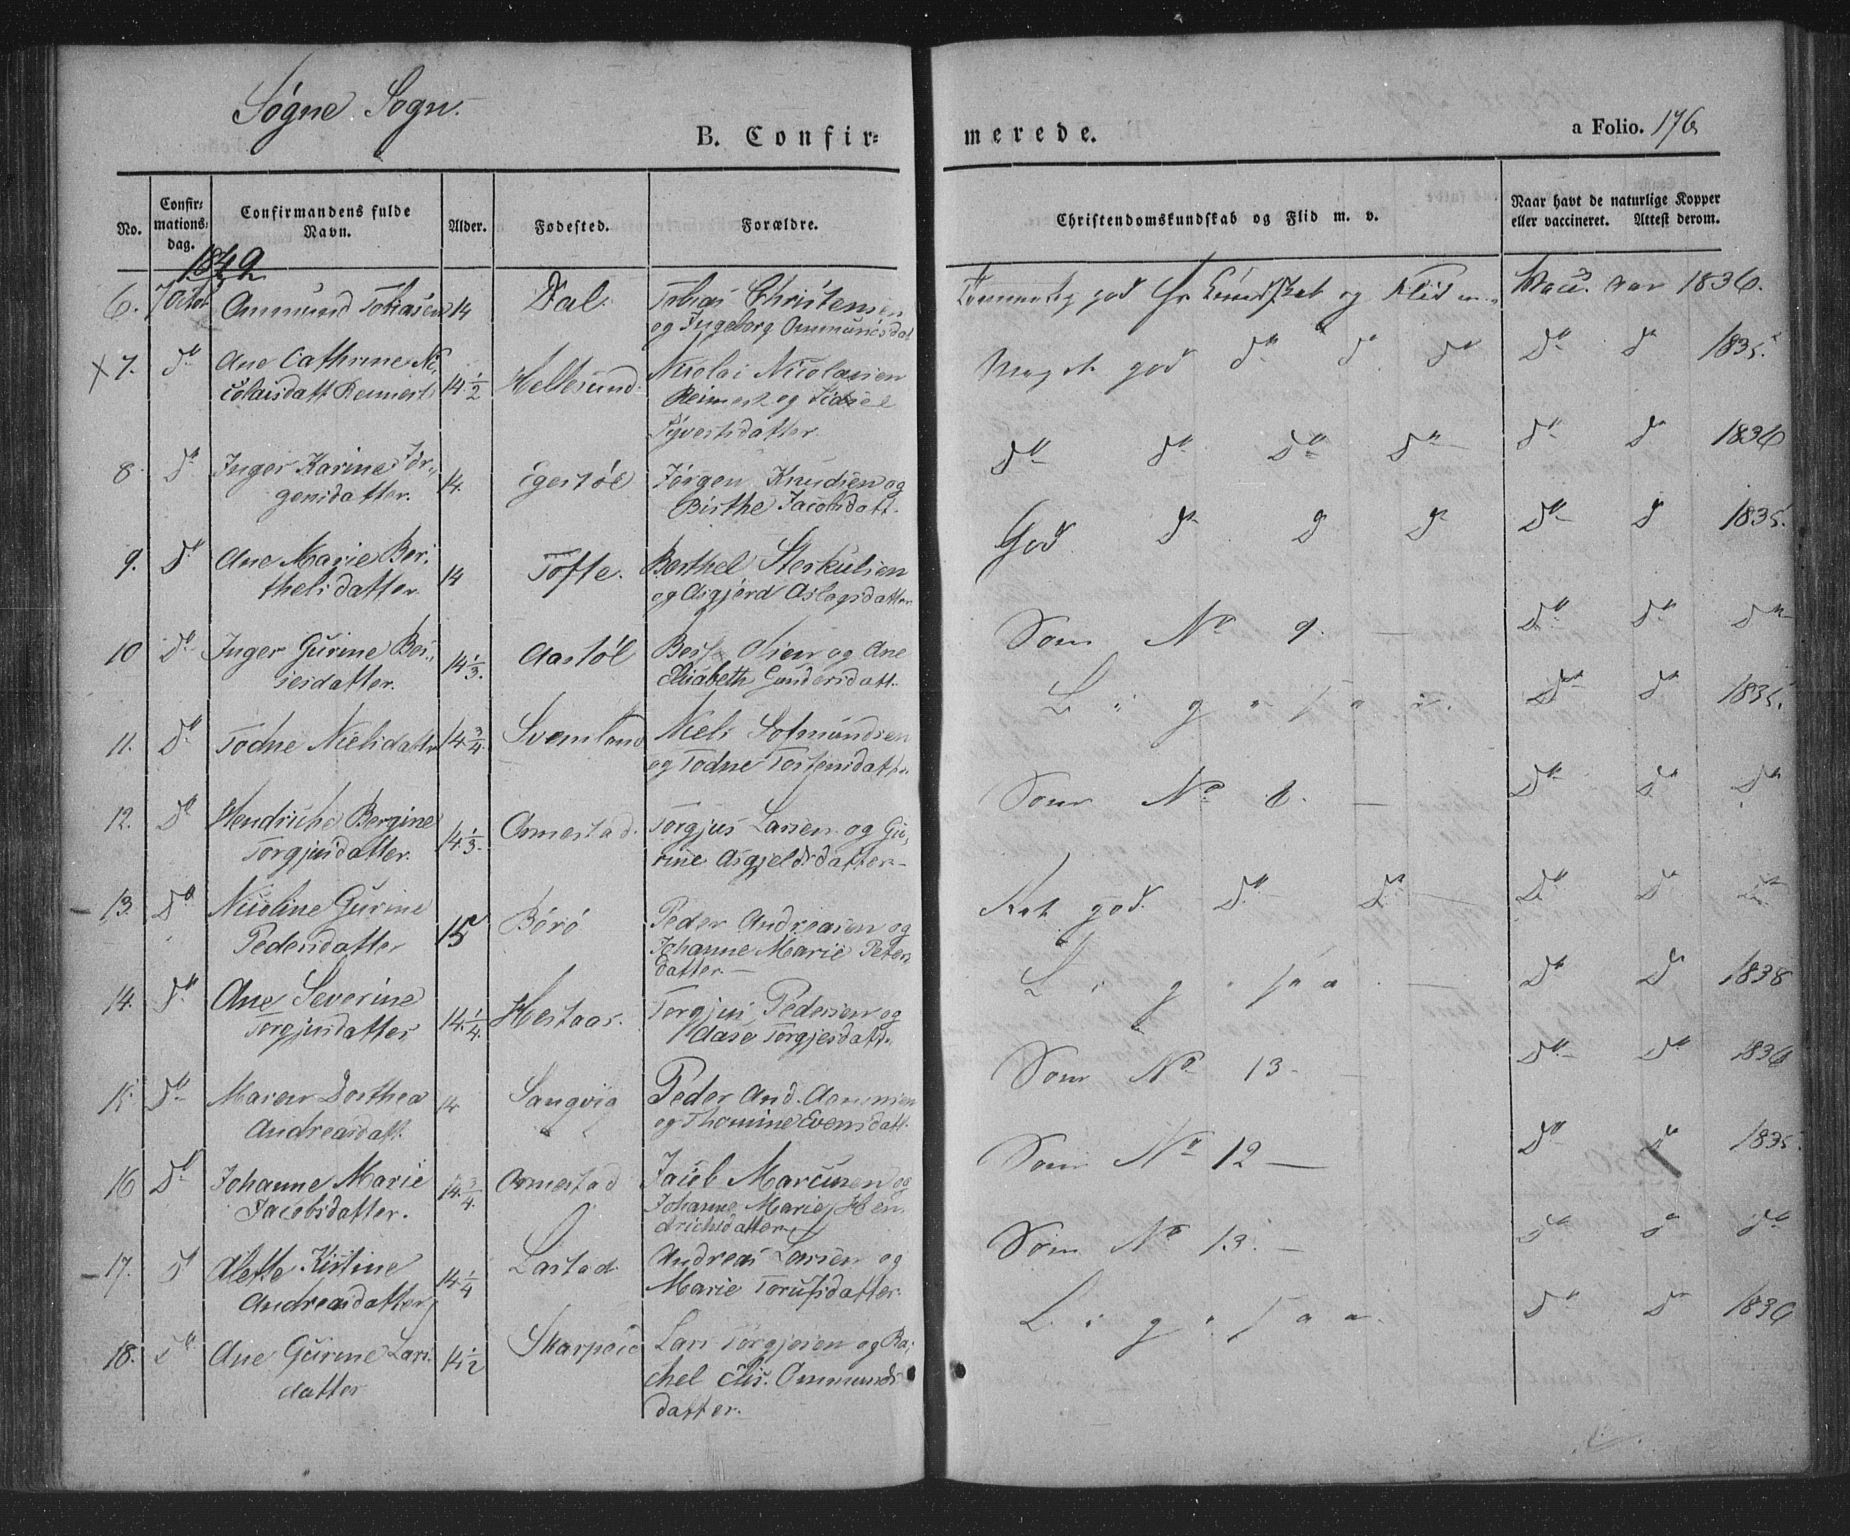 Søgne Sogn.
B. Confir-
merede.
a Folio. 176
No.
Confir-
mations-
dag.
Confirmandens fulde
Navn.
Alder.
Fødested.
Forældre.
Christendomskundskab og Flid m. v.
Naar havt de naturlige Kopper
eller vaccineret. Attest derom.
1849
6. 7 Octbr Ommund Tobiasen 14 Dal Tobias Christensen
og Ingeborg Ommundsdat
god Kundskab og Flid Vacc. 1836.
X 7. Do Ane Cathrine Ni-
colaisdatt Reimert 14 1/2 Hellesund Nicolai Nicolaisen
Reimert og Sidsel
Syvertsdatter
Meget god Do Do Do Do Do 1835.
8 Do Inger Karine Jør-
gensdatter. 14. Egestøl Jørgen Knudsen og
Birthe Jacobsdatt.
Do Do Do Do Do Do 1836
9. Do Ane Marie Ber-
thelsdatter 14 Tofte. Berthel Sterkulsen
og Asgjerd Aslagsdatter
God Do Do Do Do Do 1835.
10 Do Inger Gurine Ber-
14 1/3. Aastøl Olsen og Ane
Elisabeth Gundersdatt.
Som No 9. — Do Do Do
11. Do Todne Nielsdatter 14 3/4. Niels
og Todne Torstensdatter
L i g e s a a. Do Do 1835.
12. Do Bergine
Torgjusdatter. 14 1/3. Omestad. Torgjus Larsen og Gu-
rine Asgjeldsdatter –
Som No — Do Do Do
– 13. Do Nicoline Gurine
Pedersdatter 15 Børø Peder Andreasen og
Johanne Marie Peters
datter. —
god. Do Do Do Do Do
14. Do Ane Severine
Torgjusdatter 14 1/4. Hestaas. Torgjus Pedersen og
Aase Torgjesdatt.
L i g e s a a. — Do Do 1838
15 Do Maren Dorthea
Andreasdatt. 14 Langvig Peder And.
og Thomine Evensdatt.
Som No 13 – Do Do 1836
16 Do Johanne Marie
Jacobsdatter. 14 3/4. Omestad Jacob Marcusen og
Johanne Marie Hen
drichsdatter
Som No 12 — Do Do 1835
– 17. Do Alette Kistine
Andreasdatter 14 1/4 Lastad. Andreas Larsen og
Marie
Som No 13. – Do Do Do
18. Do Ane Gurine Lars
datter 14 1/2 Lars Torgjesen og Ra-
chel Elis. Ommunds
datter.
L i g e s a a. Do Do 1836